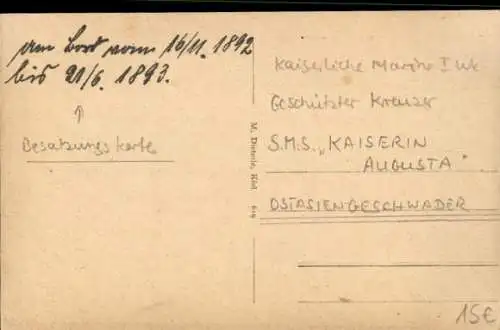 an Bord vom 16/11. 1892
bis 21/6. 1893.
↑
Besatzungskarte
M. Dieterle, Kiel.
Kaiserliche Marine I WK
Geschützter Kreuzer
S.M.S. „KAISERIN
AUGUSTA"
OSTASIENGESCHWADER
15€